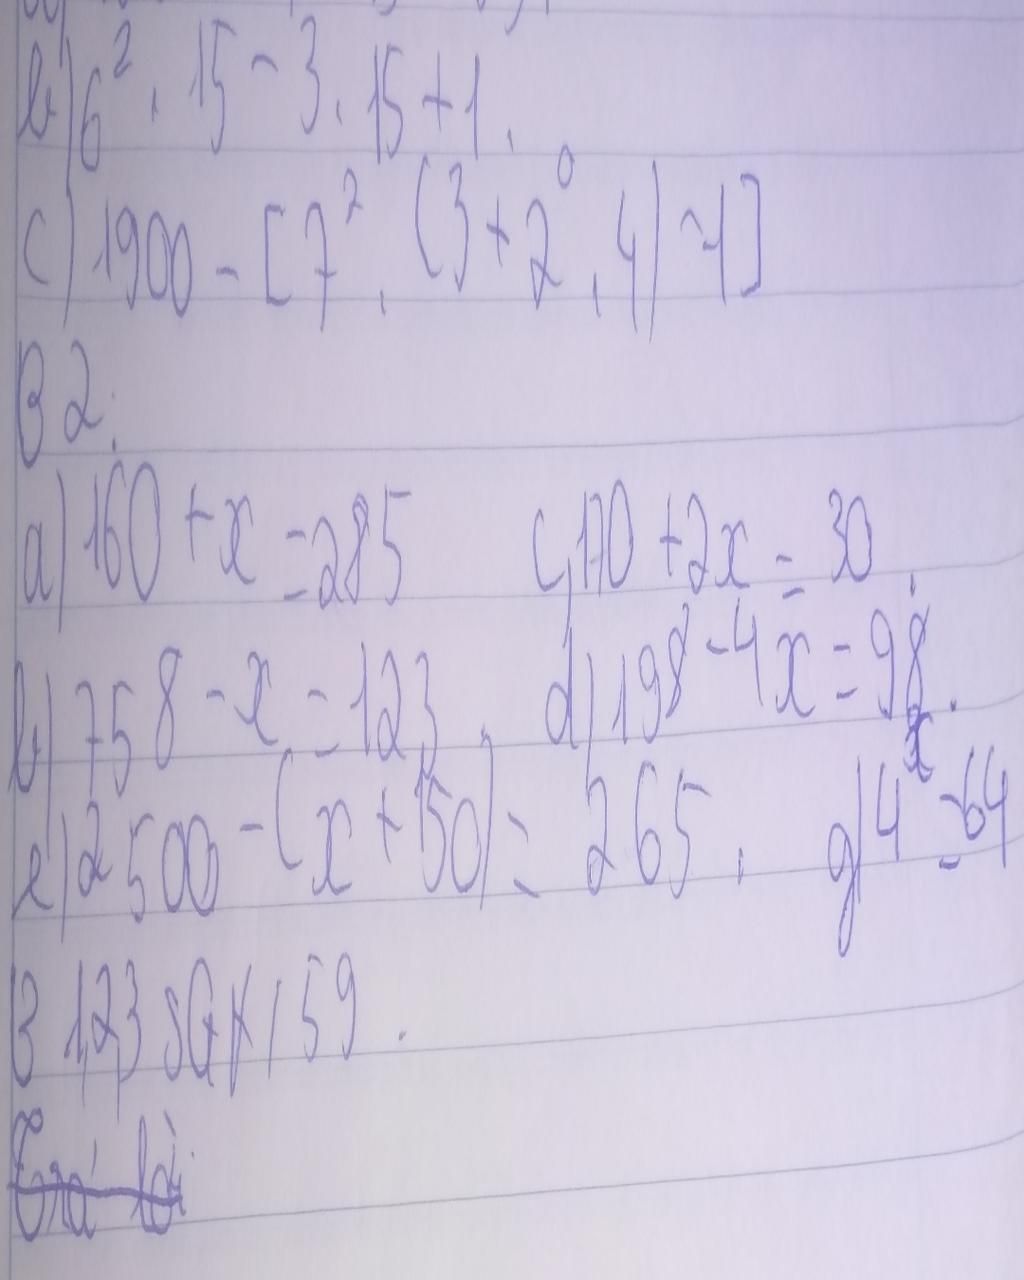 b) 6². 15 - 3. 15 + 1.
c) 1900 - [7². (3 + 2⁰. 4) - 1]
B2:
a) 160 + x = 285 c, 170 + 2x = 30.
b) 758 - x = 123. d) 198 - 4x = 98.
e) 2500 - (x + 150) = 265. g) 4ˣ = 64
B 1,2,3 SGK / 59.